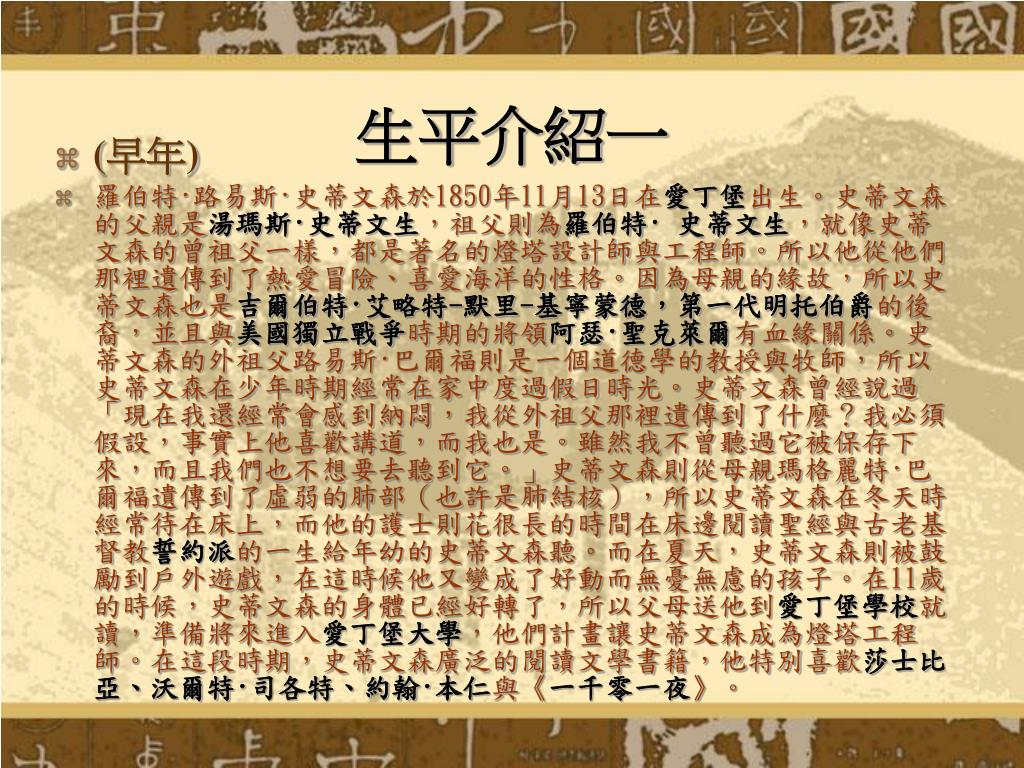 生平介紹一
(早年)
羅伯特·路易斯·史蒂文森於1850年11月13日在愛丁堡出生。史蒂文森
的父親是湯瑪斯·史蒂文生，祖父則為羅伯特· 史蒂文生，就像史蒂
文森的曾祖父一樣，都是著名的燈塔設計師與工程師。所以他從他們
那裡遺傳到了熱愛冒險、喜愛海洋的性格。因為母親的緣故，所以史
蒂文森也是吉爾伯特·艾略特-默里-基寧蒙德，第一代明托伯爵的後
裔，並且與美國獨立戰爭時期的將領阿瑟·聖克萊爾有血緣關係。史
蒂文森的外祖父路易斯·巴爾福則是一個道德學的教授與牧師，所以
史蒂文森在少年時期經常在家中度過假日時光。史蒂文森曾經說過
「現在我還經常會感到納悶，我從外祖父那裡遺傳到了什麼？我必須
假設，事實上他喜歡講道，而我也是。雖然我不曾聽過它被保存下
來，而且我們也不想要去聽到它。」史蒂文森則從母親瑪格麗特·巴
爾福遺傳到了虛弱的肺部（也許是肺結核），所以史蒂文森在冬天時
經常待在床上，而他的護士則花很長的時間在床邊閱讀聖經與古老基
督教誓約派的一生給年幼的史蒂文森聽。而在夏天，史蒂文森則被鼓
勵到戶外遊戲，在這時候他又變成了好動而無憂無慮的孩子。在11歲
的時候，史蒂文森的身體已經好轉了，所以父母送他到愛丁堡學校就
讀，準備將來進入愛丁堡大學，他們計畫讓史蒂文森成為燈塔工程
師。在這段時期，史蒂文森廣泛的閱讀文學書籍，他特別喜歡莎士比
亞、沃爾特·司各特、約翰·本仁與《一千零一夜》。